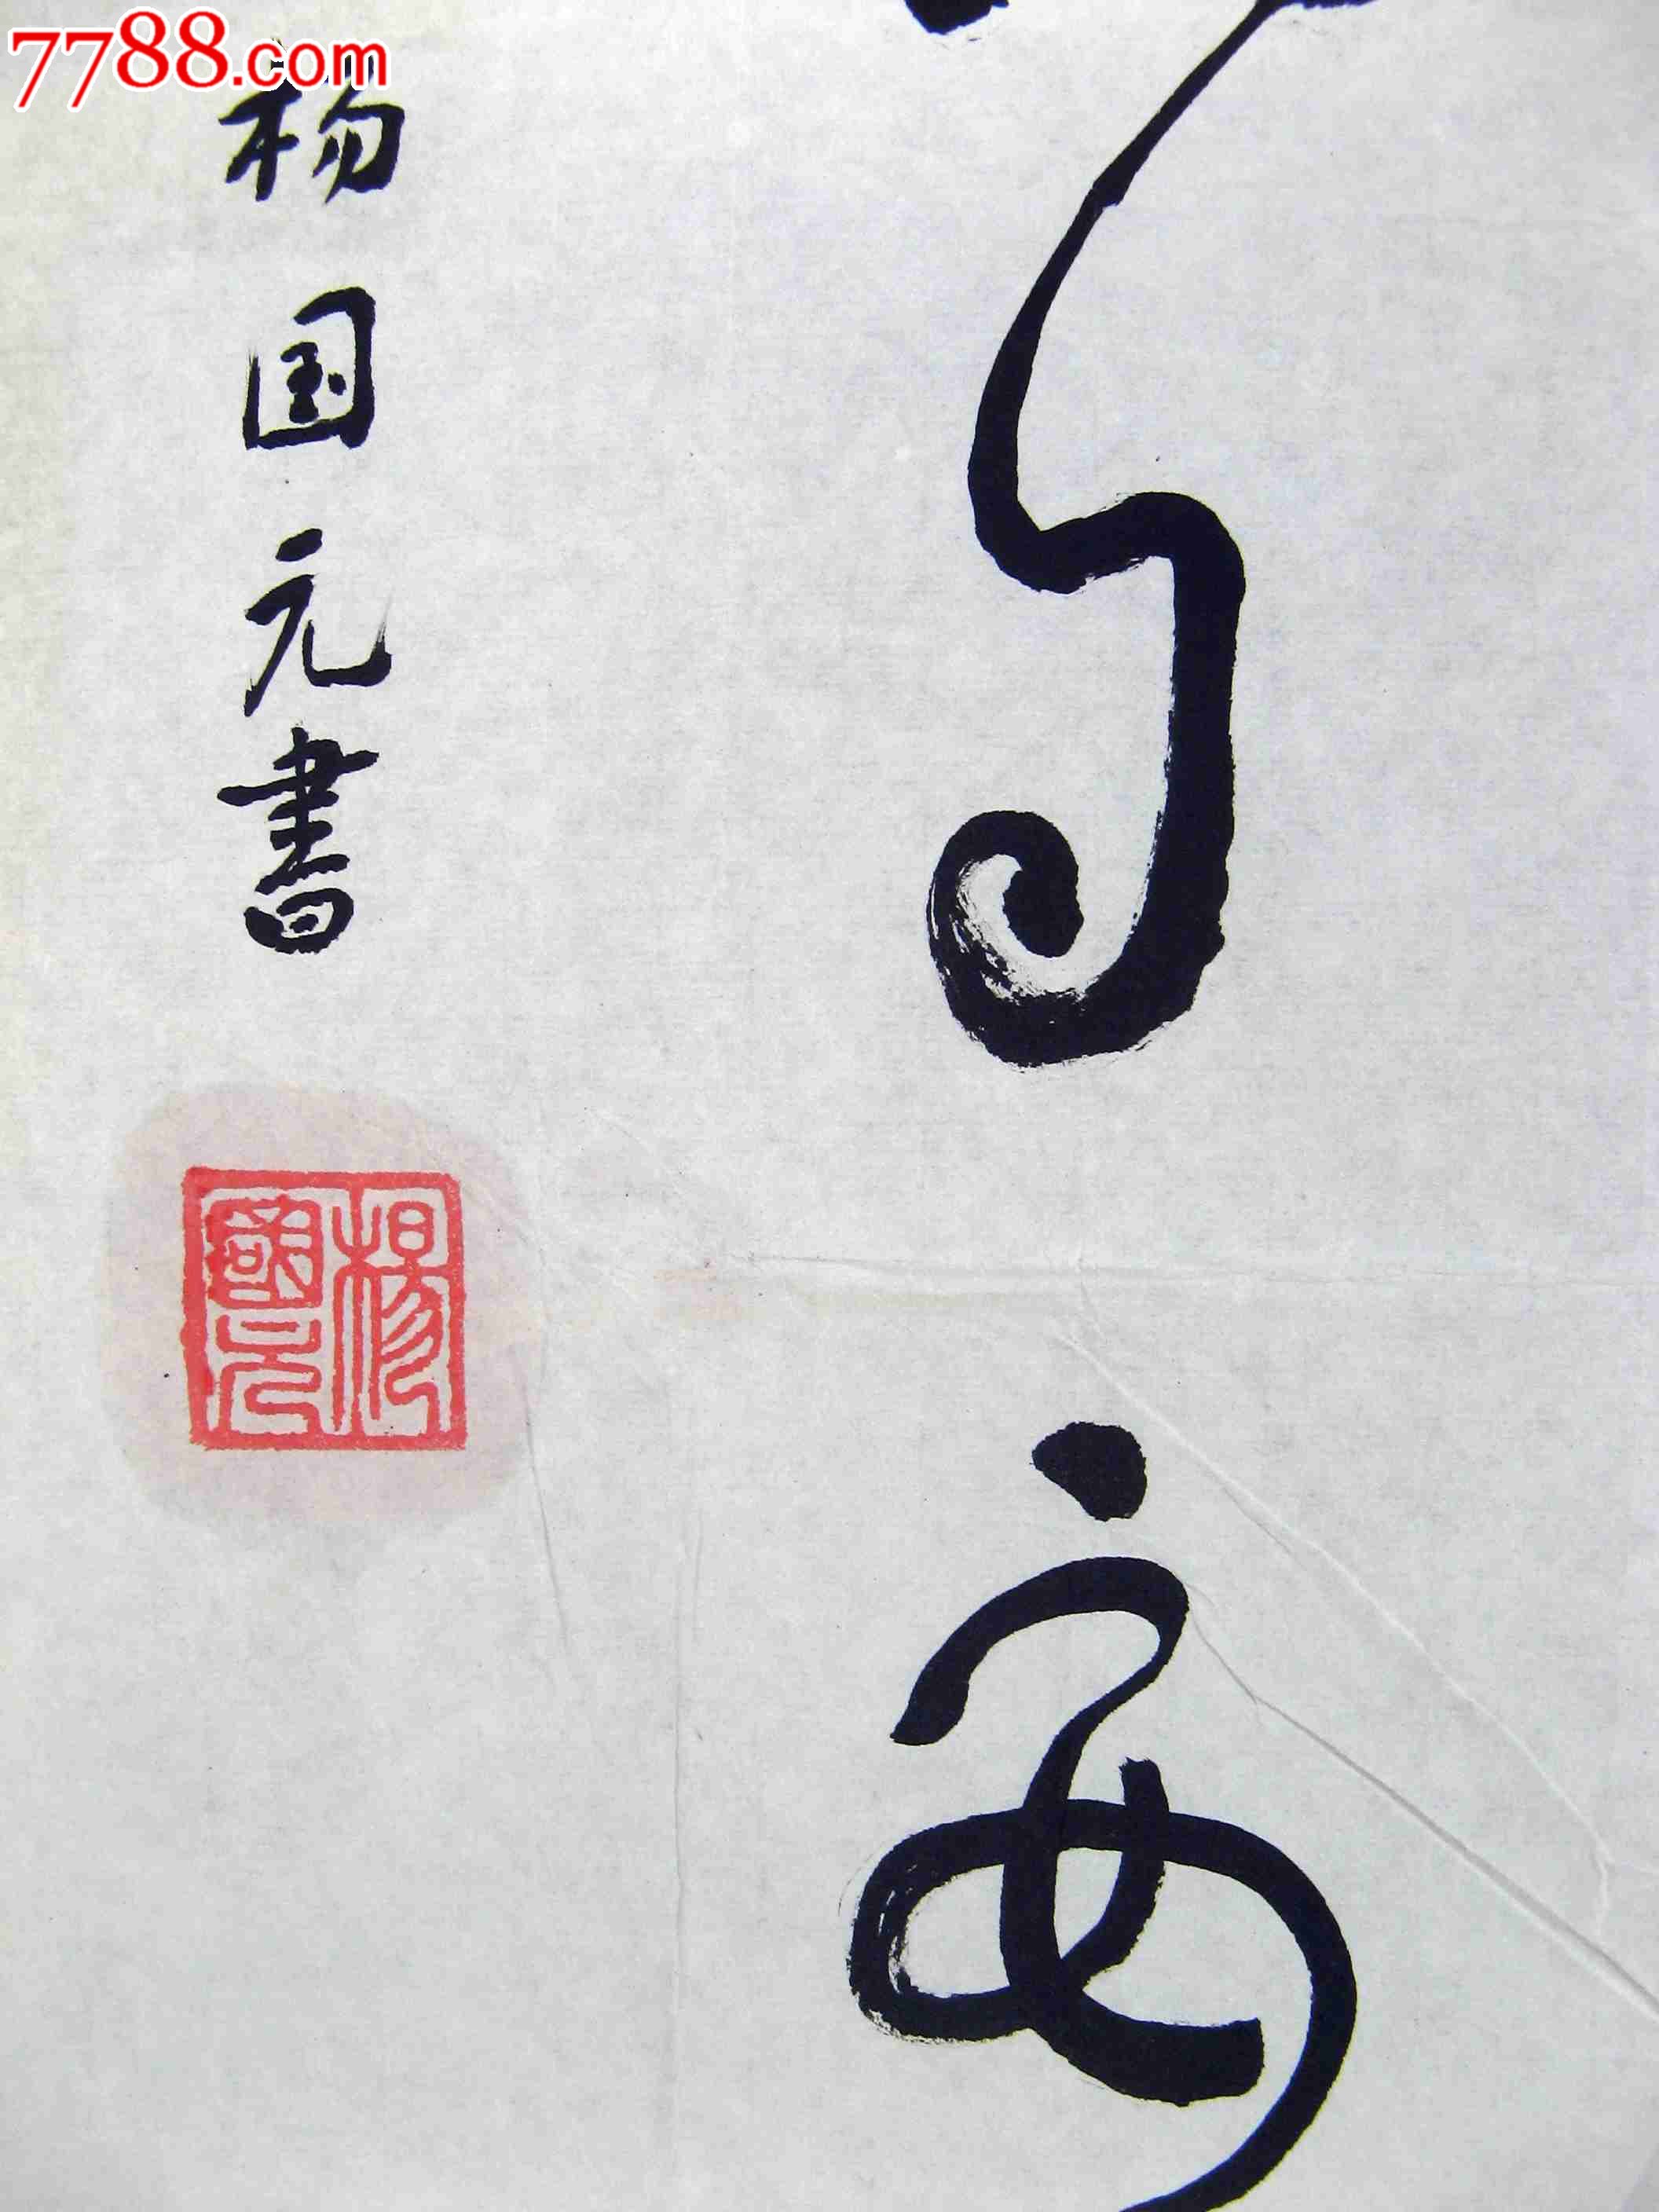 7788.com
安
杨国元書
楊國元